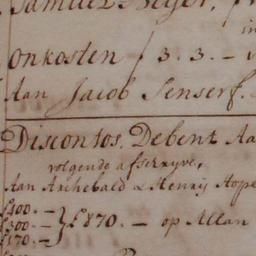 Samuel Beyer,
in
Onkosten f 3.3.–
Aan Jacob Senserf.
Discontos, Debent Aa
volgende afschryve,
Aan Archebald & Henrij Hope
£400.–
£300.– } £870.– op Allan
£170.–